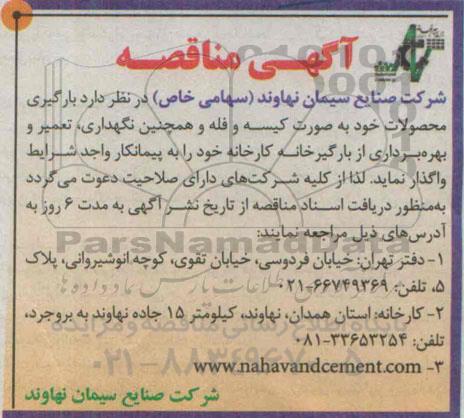 آگهی مناقصه
شرکت صنایع سیمان نهاوند (سهامی خاص) در نظر دارد بارگیری
محصولات خود به صورت کیسه و فله و همچنین نگهداری، تعمیر و
بهره‌برداری از بارگیرخانه کارخانه خود را به پیمانکار واجد شرایط
واگذار نماید. لذا از کلیه شرکت‌های دارای صلاحیت دعوت می‌گردد
به‌منظور دریافت اسناد مناقصه از تاریخ نشر آگهی به مدت ۶ روز به
آدرس‌های ذیل مراجعه نمایند:
۱- دفتر تهران: خیابان فردوسی، خیابان تقوی، کوچه انوشیروانی، پلاک
۵، تلفن: ۶۶۷۴۹۳۶۹-۰۲۱
۲- کارخانه: استان همدان، نهاوند، کیلومتر ۱۵ جاده نهاوند به بروجرد،
تلفن: ۳۳۶۵۳۲۵۴-۰۸۱
۳- www.nahavandcement.com
شرکت صنایع سیمان نهاوند
ParsNamadData
پایگاه اطلاع رسانی مناقصه و مزایده
۰۲۱-۸۸۳۴۹۶۷۰-۵